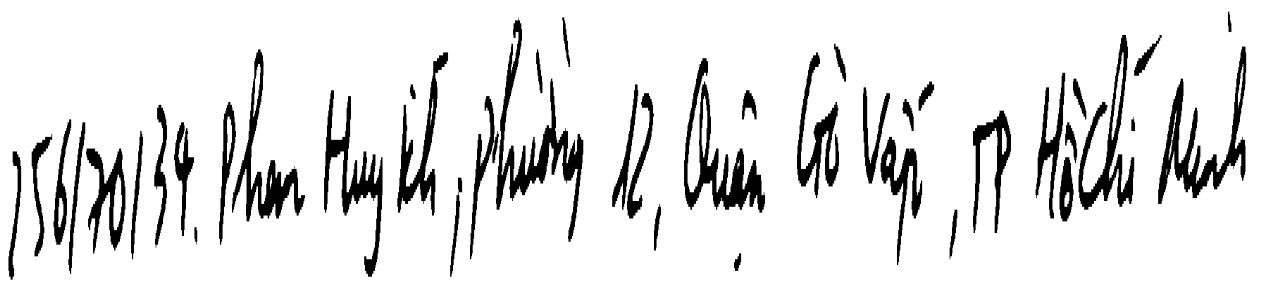 156/70/34. Phan Huy Ích, phường 12, Quận Gò Vấp, TP Hồ Chí Minh